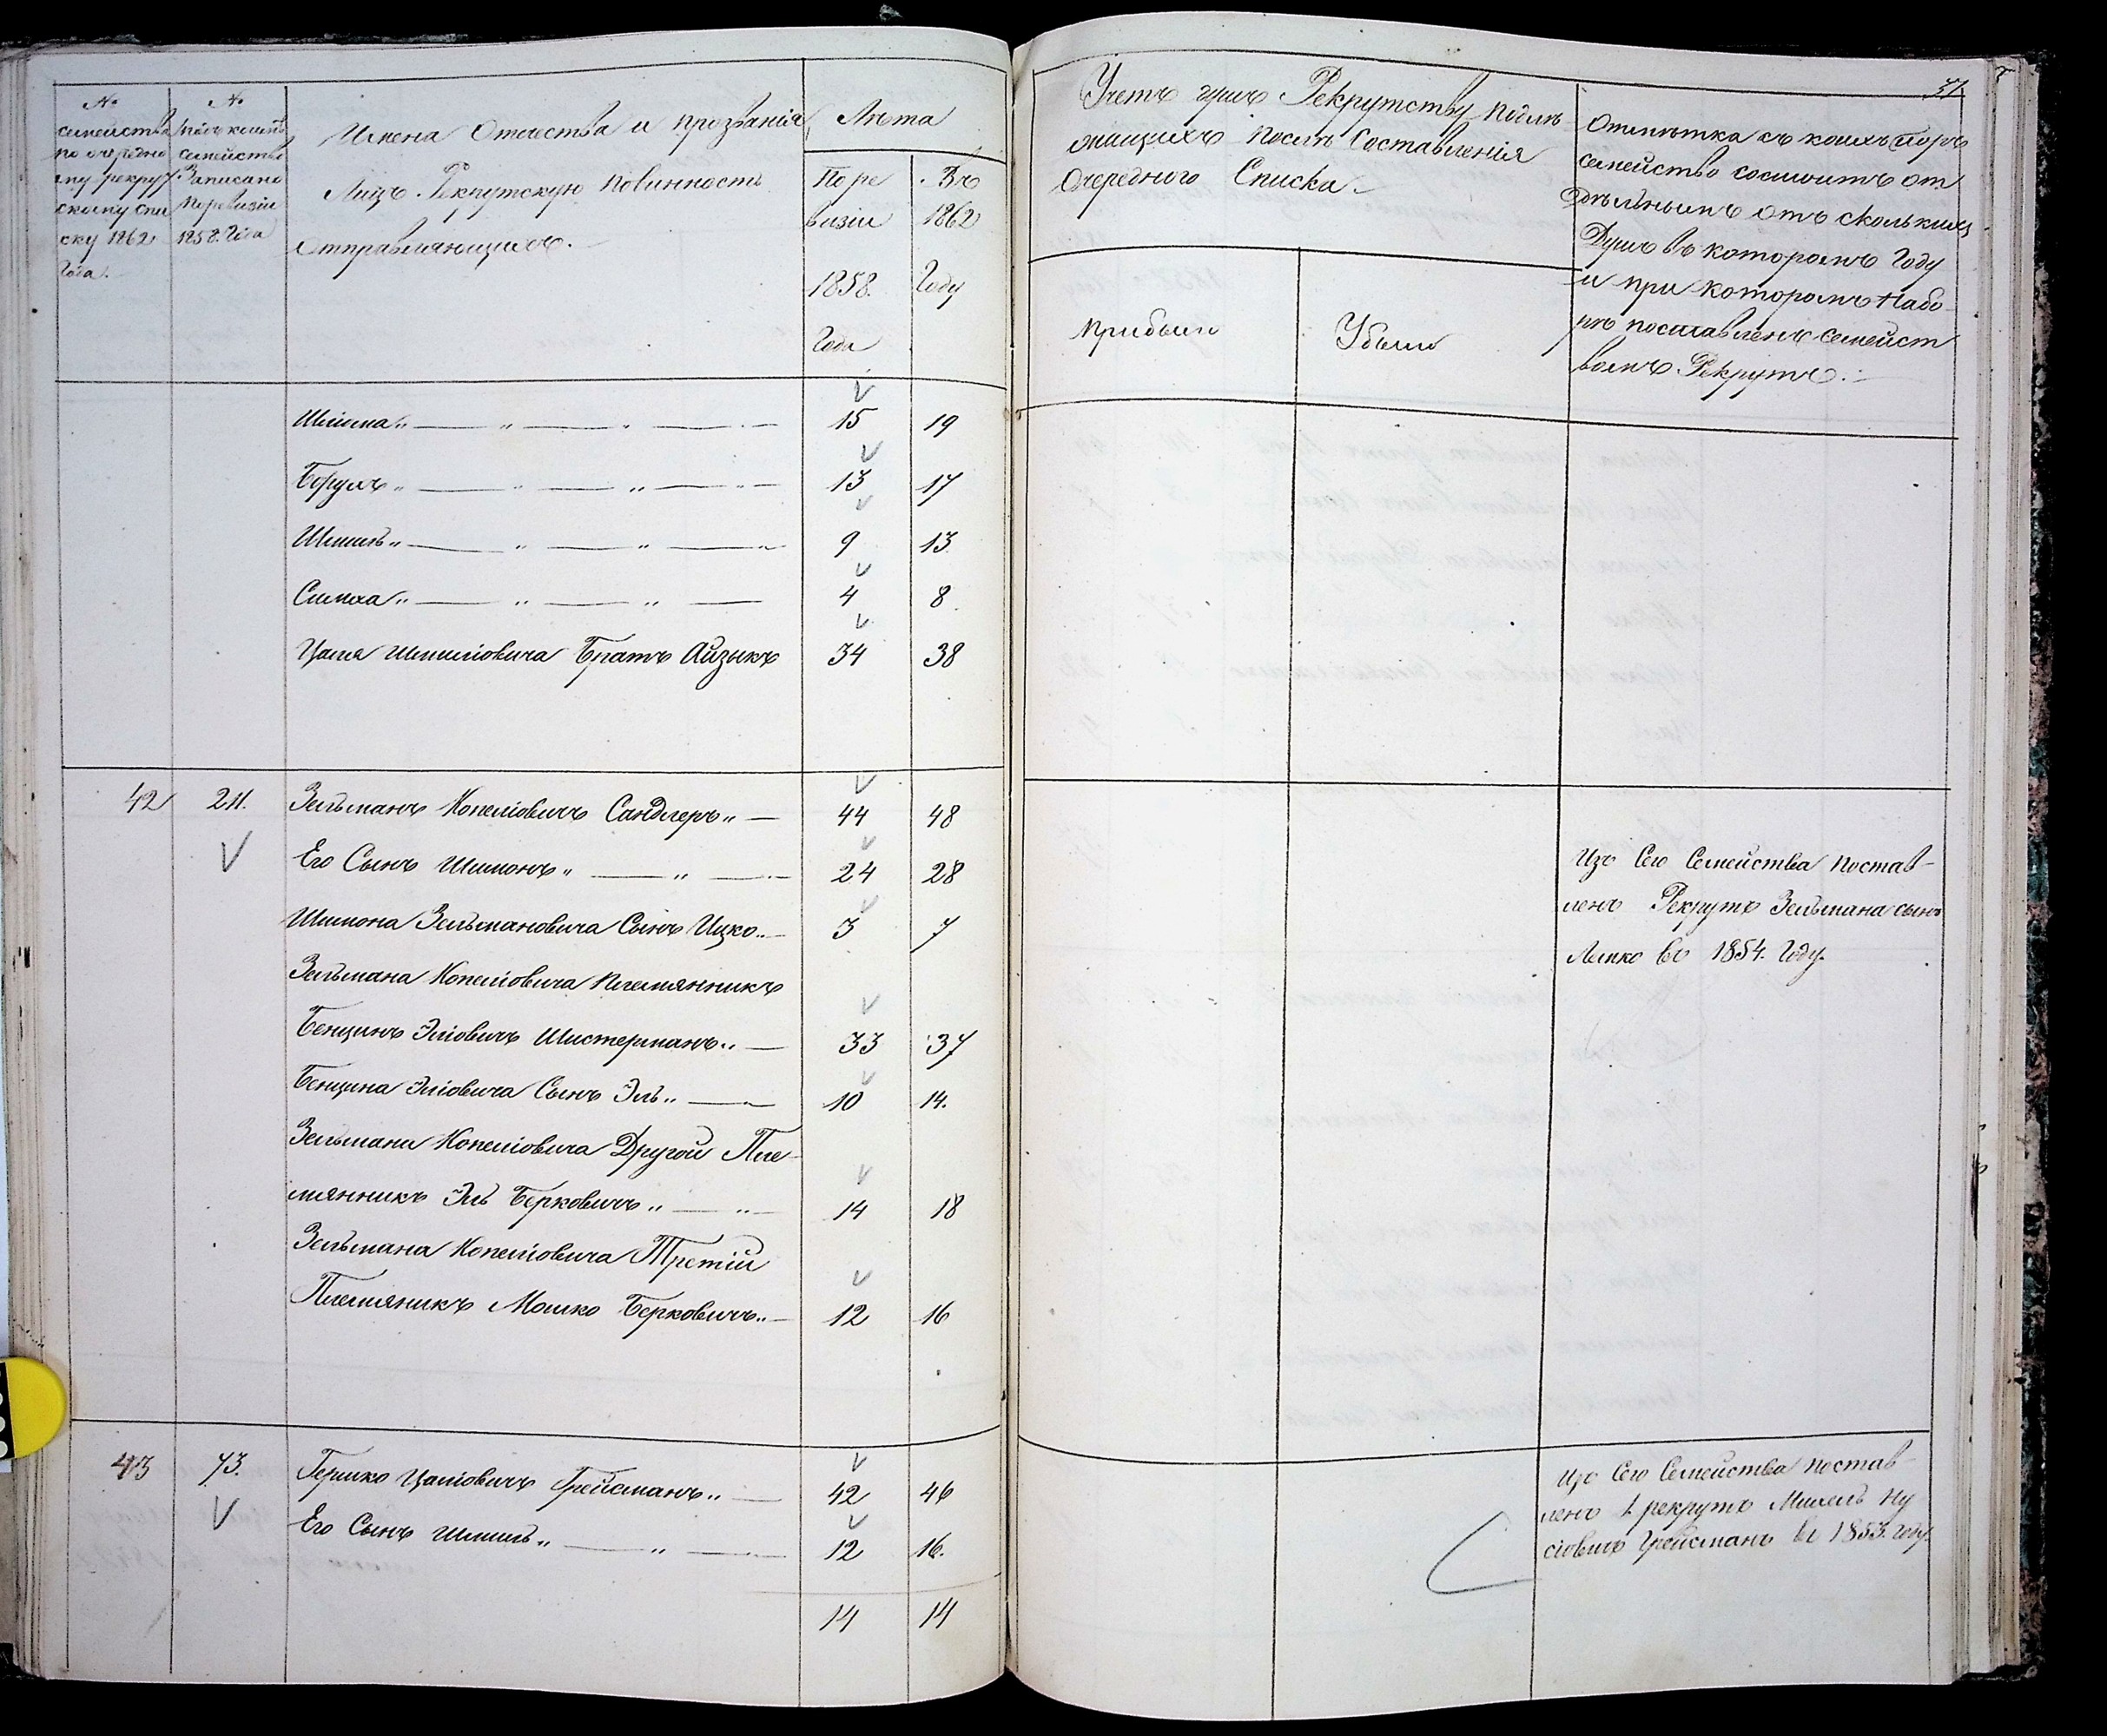 №
семейства
по очередно
му рекрут
скому спи
ску 1862
Года.
№
подъ коимъ
семейство
Записано
По ревизіи
1858. Года
Имена Отечества и прозванія
Лицъ. Рекрутскую повинность
Отправляющихъ.
Лѣта
По ре
визіи
1858.
Года
Въ
1862
Году
Шлиома „ — „ — „ — „ — 15 19
Борухъ „ — „ — „ — „ — 13 17
Шмиль „ — „ — „ — „ 9 13
Симха „ — „ — „ — 4 8
Цаля Шмиліовича Братъ Айзыкъ 34 38
42 211. Зельманъ Копеліовичъ Сандлеръ „ — 44 48
Его Сынъ Шимонъ „ — „ — 24 28
Шимона Зельмановича Сынъ Ицко „ — 3 7
Зельмана Копеліовича Племянникъ
Бенционъ Эліовичъ Шистерманъ „ — 33 37
Бенциона Эліовича Сынъ Эль „ — 10 14.
Зельмана Копеліовича Другой Пле-
мянникъ Эль Берковичъ „ — „ — 14 18
Зельмана Копеліовича Третій
Племяникъ Мошко Берковичъ „ — 12 16
43 73. Гершко Цаліовичъ Грейсманъ „ — 42 46
Его Сынъ Шмиль „ — „ — 12 16.
14 14
37
Учетъ душъ Рекрутству подле
жащихъ послѣ Составленія
Очереднаго Списка.
Прибыли
Убыли
Отмѣтка съ коихъ поръ
семейство состоитъ от
дѣльнымъ отъ сколькихъ
Душъ въ которомъ Году
и при которомъ Набо
рѣ поставленъ семейст
вомъ Рекрутъ.
Изъ Сего Семейства постав-
ленъ Рекрутъ Зельмана сынъ
Липко въ 1854. Году.
Изъ Сего Семейства постав
ленъ 1 рекрутъ Михель Ну
сіовичъ Грейсманъ въ 1853. году.